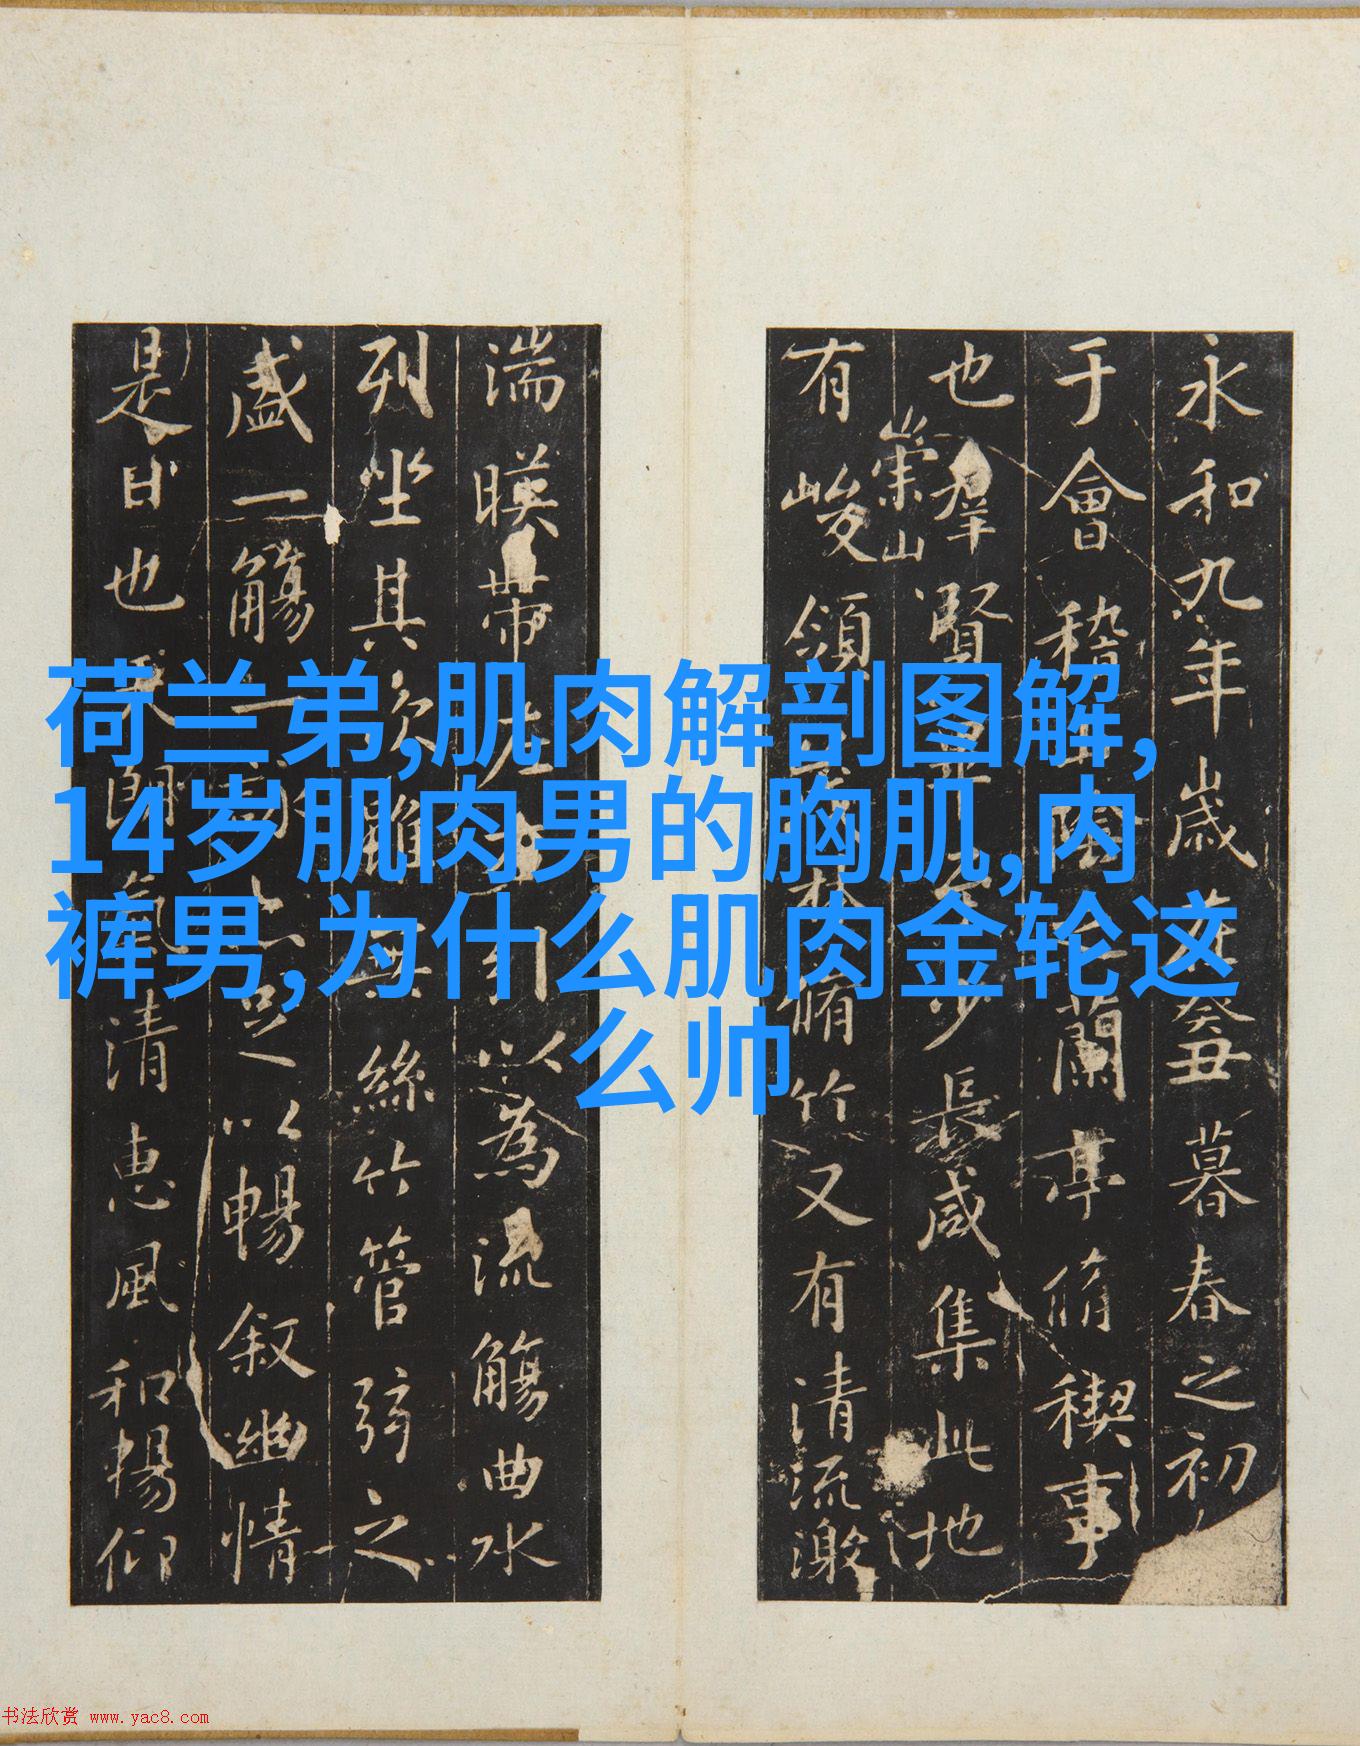 荷兰弟,肌肉解剖图解,
14岁肌肉男的胸肌,内
裤男,为什么肌肉金轮这
么帅
永和九年歲在癸丑暮春之初
于會稽山陰之蘭亭脩稧事
也羣賢畢至少長咸集此地
崇山
有峻領茂林脩竹又有清流激
湍暎帶左右引以為流觴曲水
列坐其次雖無絲竹管弦之
盛一觴一詠亦足以暢叙幽情
是日也天朗氣清惠風和暢仰
书法欣赏 www.yac8.com